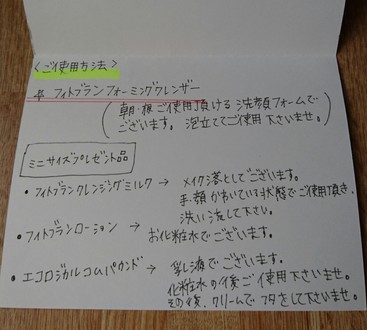 〈ご使用方法〉
# フィトブランフォーミングクレンザー
(朝・夜ご使用頂ける洗顔フォームで
ございます。泡立ててご使用下さいませ。)
ミニサイズプレゼント品
・フィトブランクレンジングミルク → メイク落としでございます。
手・顔かわいている状態でご使用頂き、
洗い流して下さい。
・フィトブランローション → お化粧水でございます。
・エコロジカルコムパウンド → 乳液でございます。
化粧水の後ご使用下さいませ。
その後、クリームでフタをして下さいませ。